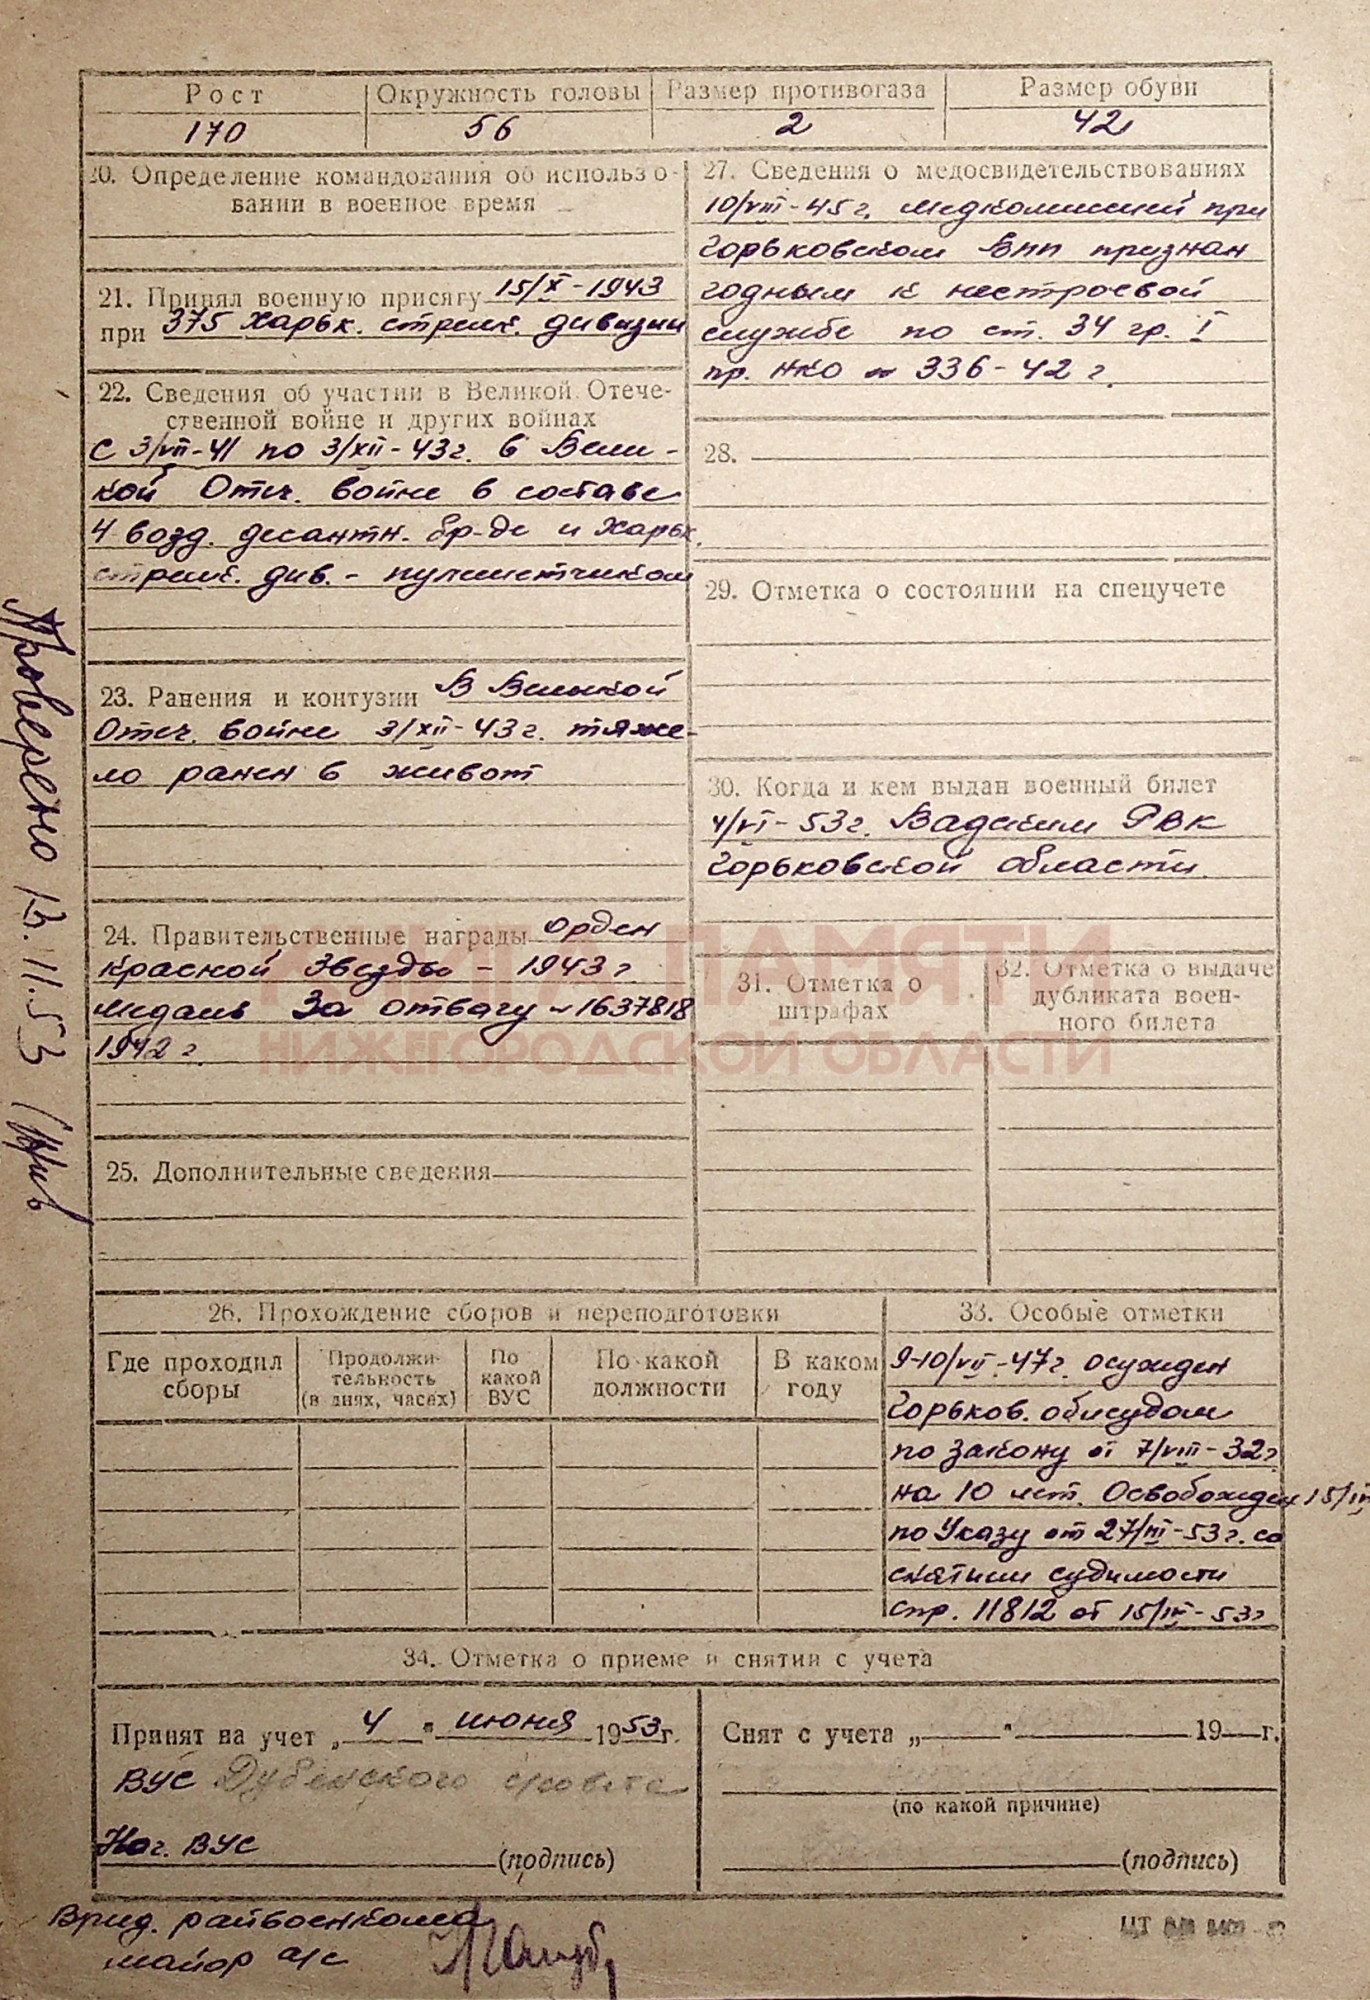 Рост Окружность головы Размер противогаза Размер обуви
170 56 2 42
20. Определение командования об использо-
вании в военное время
21. Принял военную присягу 15/X-1943
при 375 Харьк. стрелк. дивизии
22. Сведения об участии в Великой Отече-
ственной войне и других войнах
С 3/VII-41 по 3/XII-43г. в Вели-
кой Отеч. войне в составе
4 возд. десантн. бр-де и Харьк.
стрелк. див. - пулеметчиком
23. Ранения и контузии В Великой
Отеч. войне 3/XII-43г. тяже-
ло ранен в живот
24. Правительственные награды орден
Красной Звезды - 1943 г
медаль За отвагу № 1637818
1942 г.
25. Дополнительные сведения
27. Сведения о медосвидетельствованиях
10/VIII-45г. медкомиссией при
Горьковском ВПП признан
годным к нестроевой
службе по ст. 34 гр. I
пр. НКО № 336-42 г.
28.
29. Отметка о состоянии на спецучете
30. Когда и кем выдан военный билет
4/VI-53г. Вадским РВК
Горьковской области
31. Отметка о
штрафах
32. Отметка о выдаче
дубликата воен-
ного билета
КНИГА ПАМЯТИ
НИЖЕГОРОДСКОЙ ОБЛАСТИ
26. Прохождение сборов и переподготовки
Где проходил
сборы
Продолжи-
тельность
(в днях, часах)
По
какой
ВУС
По какой
должности
В каком
году
33. Особые отметки
9-10/VII-47г. осужден
Горьков. облсудом
по закону от 7/VIII-32г
на 10 лет. Освобожден 15/IV
по Указу от 27/III-53г. со
снятием судимости
спр. 11812 от 15/IV-53г
34. Отметка о приеме и снятии с учета
Принят на учет „4" июня 1953г.
ВУС Дубенского с/совета
Нач. ВУС (подпись)
Снят с учета „ " 19 г.
(по какой причине)
(подпись)
Врид. райвоенкома
майор а/с
Проверено 13.11.53